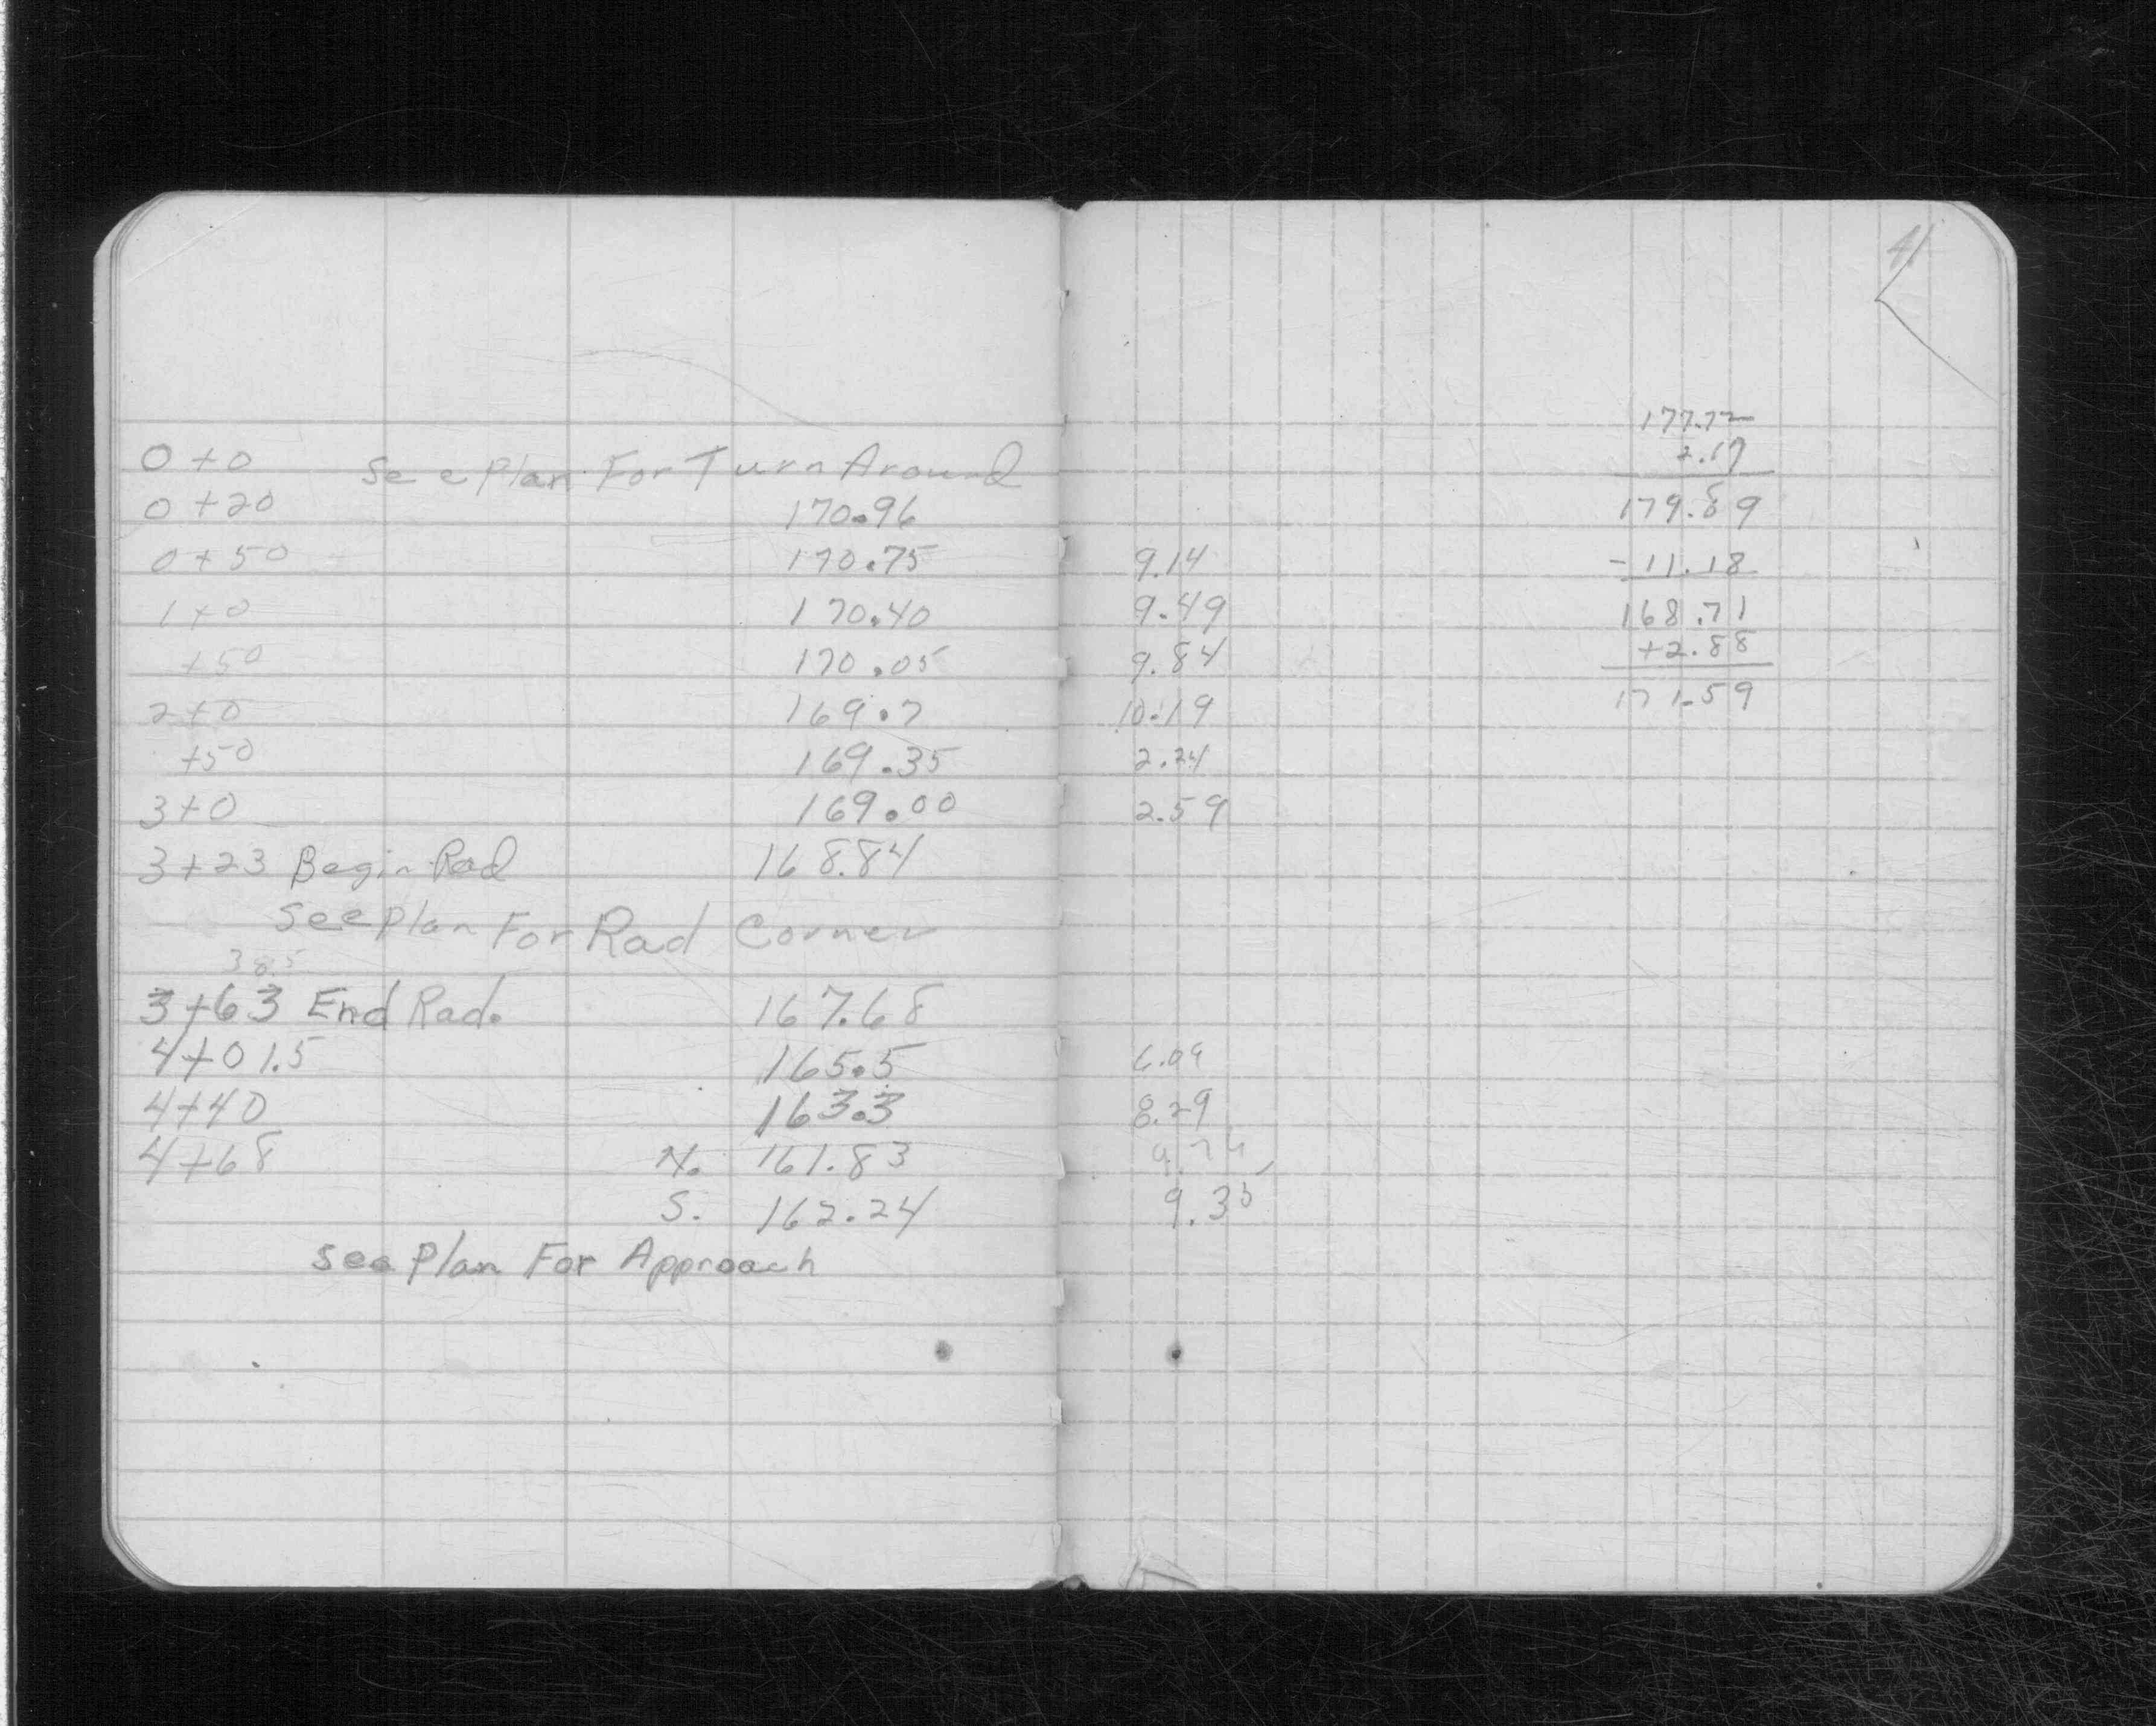 0+0 See Plan For Turn Around
0+20 170.96
0+50 170.75
1+0 170.40
+50 170.05
2+0 169.7
+50 169.35
3+0 169.00
3+23 Begin Rad 168.84
See plan For Rad Corner
38.5
3+63 End Rad. 167.68
4+01.5 165.5
4+40 163.3
4+68 N. 161.83
S. 162.24
See Plan For Approach
41
177.72
2.17
179.89
-11.18
168.71
+2.88
171.59
9.14
9.49
9.84
10.19
2.24
2.59
6.09
8.29
9.74
9.35